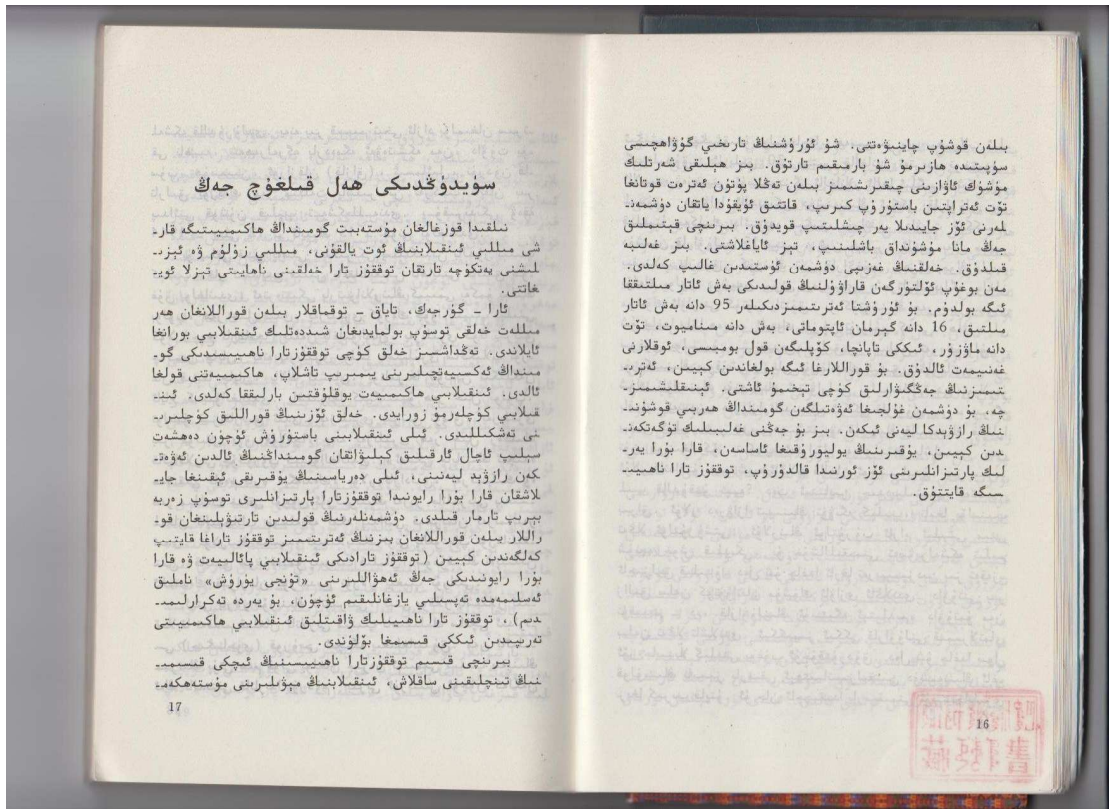 بىلەن قوشۇپ چاينىۋەتتى. شۇ ئۇرۇشنىڭ تارىخىي گۇۋاھچىسى
سۈپىتىدە ھازىرمۇ شۇ بارمىقىم تارتۇق. بىز ھېلىقى شەرتلىك
مۈشۈك ئاۋازىنى چىقىرىشىمىز بىلەن تەڭلا پۈتۈن ئەترەت قوتانغا
تۆت ئەتراپتىن باستۇرۇپ كىرىپ، قاتتىق ئۇيقۇدا ياتقان دۈشمەنـ
لەرنى ئۆز جايىدىلا يەر چىشلىتىپ قويدۇق. بىرىنچى قېتىملىق
جەڭ مانا مۇشۇنداق باشلىنىپ، تېز ئاياغلاشتى. بىز غەلىبە
قىلدۇق. خەلقنىڭ غەزىپى دۈشمەن ئۈستىدىن غالىپ كەلدى.
مەن بوغۇپ ئۆلتۈرگەن قاراۋۇلنىڭ قولىدىكى بەش ئاتار مىلتىققا
ئىگە بولدۇم. بۇ ئۇرۇشتا ئەترىتىمىزدىكىلەر 95 دانە بەش ئاتار
مىلتىق، 16 دانە گېرمان ئاپتوماتى، بەش دانە مىنامىيوت، تۆت
دانە ماۋزۇر، ئىككى تاپانچا، كۆپلىگەن قول بومبىسى، ئوقلارنى
غەنىيمەت ئالدۇق. بۇ قوراللارغا ئىگە بولغاندىن كېيىن، ئەترىـ
تىمىزنىڭ جەڭگىۋارلىق كۈچى تېخىمۇ ئاشتى. ئېنىقلىشىمىزـ
چە، بۇ دۈشمەن غۇلجىغا ئەۋەتىلگەن گومىنداڭ ھەربىي قوشۇنىـ
نىڭ رازۋېدكا ليەنى ئىكەن. بىز بۇ جەڭنى غەلىبىلىك تۈگەتكەنـ
دىن كېيىن، يۇقىرىنىڭ يوليورۇقىغا ئاساسەن، قارا بۇرا يەرـ
لىك پارتىزانلىرىنى ئۆز ئورنىدا قالدۇرۇپ، توققۇز تارا ناھىيىـ
سىگە قايتتۇق.
16
سۈيدۈڭدىكى ھەل قىلغۇچ جەڭ
نىلقىدا قوزغالغان مۇستەبىت گومىنداڭ ھاكىمىيىتىگە قارـ
شى مىللىي ئىنقىلابنىڭ ئوت يالقۇنى، مىللىي زۇلۇم ۋە ئېزىـ
لىشنى يەتكۈچە تارتقان توققۇز تارا خەلقىنى ناھايىتى تېزلا ئويـ
غاتتى.
ئارا ـ گۈرجەك، تاياق ـ توقماقلار بىلەن قوراللانغان ھەر
مىللەت خەلقى توسۇپ بولمايدىغان شىددەتلىك ئىنقىلابىي بورانغا
ئايلاندى. تەڭداشسىز خەلق كۈچى توققۇزتارا ناھىيىسىدىكى گوـ
مىنداڭ ئەكسىيەتچىلىرىنى يىمىرىپ تاشلاپ، ھاكىمىيەتنى قولغا
ئالدى. ئىنقىلابىي ھاكىمىيەت يوقلۇقتىن بارلىققا كەلدى. ئىنـ
قىلابىي كۈچلەرمۇ زورايدى. خەلق ئۆزىنىڭ قوراللىق كۈچلىرىـ
نى تەشكىللىدى. ئىلى ئىنقىلابىنى باستۇرۇش ئۈچۈن دەھشەت
سېلىپ ئاچال ئارقىلىق كېلىۋاتقان گومىنداڭنىڭ ئالدىن ئەۋەتـ
كەن رازۋېد ليەنىنى، ئىلى دەرياسىنىڭ يۇقىرىقى ئېقىنىغا جايـ
لاشقان قارا بۇرا رايونىدا توققۇزتارا پارتىزانلىرى توسۇپ زەربە
بېرىپ تارمار قىلدى. دۈشمەنلەرنىڭ قولىدىن تارتىۋېلىنغان قوـ
راللار بىلەن قوراللانغان بىزنىڭ ئەترىتىمىز توققۇز تاراغا قايتىپ
كەلگەندىن كېيىن (توققۇز تارادىكى ئىنقىلابىي پائالىيەت ۋە قارا
بۇرا رايونىدىكى جەڭ ئەھۋاللىرىنى «تۇنجى يۈرۈش» ناملىق
ئەسلىمەمدە تەپسىلىي يازغانلىقىم ئۈچۈن، بۇ يەردە تەكرارلىمىـ
دىم)، توققۇز تارا ناھىيىلىك ۋاقىتلىق ئىنقىلابىي ھاكىمىيىتى
تەرىپىدىن ئىككى قىسىمغا بۆلۈندى.
بىرىنچى قىسىم توققۇزتارا ناھىيىسىنىڭ ئىچكى قىسىمىـ
نىڭ تىنچلىقىنى ساقلاش، ئىنقىلابنىڭ مېۋىلىرىنى مۇستەھكەمـ
17